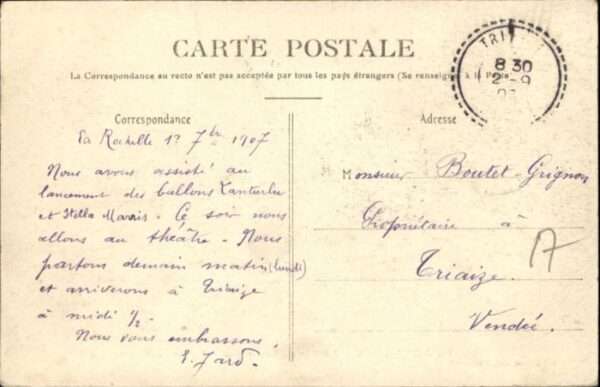 CARTE POSTALE
La Correspondance au recto n'est pas acceptée par tous les pays étrangers (Se renseigner à la Poste
TRI
8 30
2 - 9
Correspondance
Adresse
La Rochelle 1er 7bre 1907
Nous avons assisté au
lancement des ballons
et Stella Maris. Ce soir nous
allons au théâtre. Nous
partons demain matin (lundi)
et arriverons à Triaize
à midi 1/2.
Nous vous embrassons.
Monsieur Boutet-Grignon
Propriétaire à
Triaize.
Vendée.